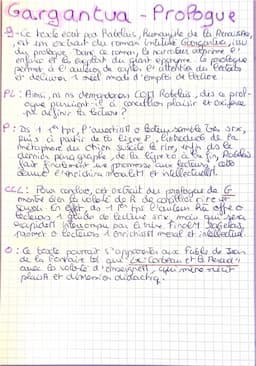 Gargantua - Prologue
- Ce texte écrit par Rabelais, Humaniste de la Renaissance,
est un extrait du roman intitulé Gargantua, issu
du prologue. Dans ce roman, le narrateur exprime l'
enfance et les exploits du géant éponyme. Le prologue
permet à l'auteur de capter l'attention du lecteur
et délivrer le mode d'emploi de lecture.
PL: Ainsi, ns ns demanderons COM Rabelais, dès ce prol-
ogue parvient-il à concilier plaisir et exigence
pr définir sa lecture?
P: Ds 1 tps, l'ouverture lecteur semble être sxx,
puis à partir de la ligne
métaphore du chien suscite le rire, enfin ds le
dernier paragraphe, de la ligne à la fin, Rabelais
fait finalement une promesse aux lecteurs, celle
d'enrichir moralmt et intellectuellmt.
CCL: Pour conclure, cet extrait du prologue de G
montre bien la volonté de R de concilier rire et
savoir. En effet, ds 1 tps l'auteur offre
lecteurs 1 guide de lecture sxx, mais qui sera
rapidemt interrompu par le rire. Finalemt Rabelais
promet à lecteurs 1 enrichissmt moral et intellectuel.
O: Ce texte pourrait s'apparenter aux Fables de Jean
de La Fontaine tel que Le Corbeau et le Renard
avec la volonté d'enseignemt, qui mêle récit
plaisant et dimension didactiq.